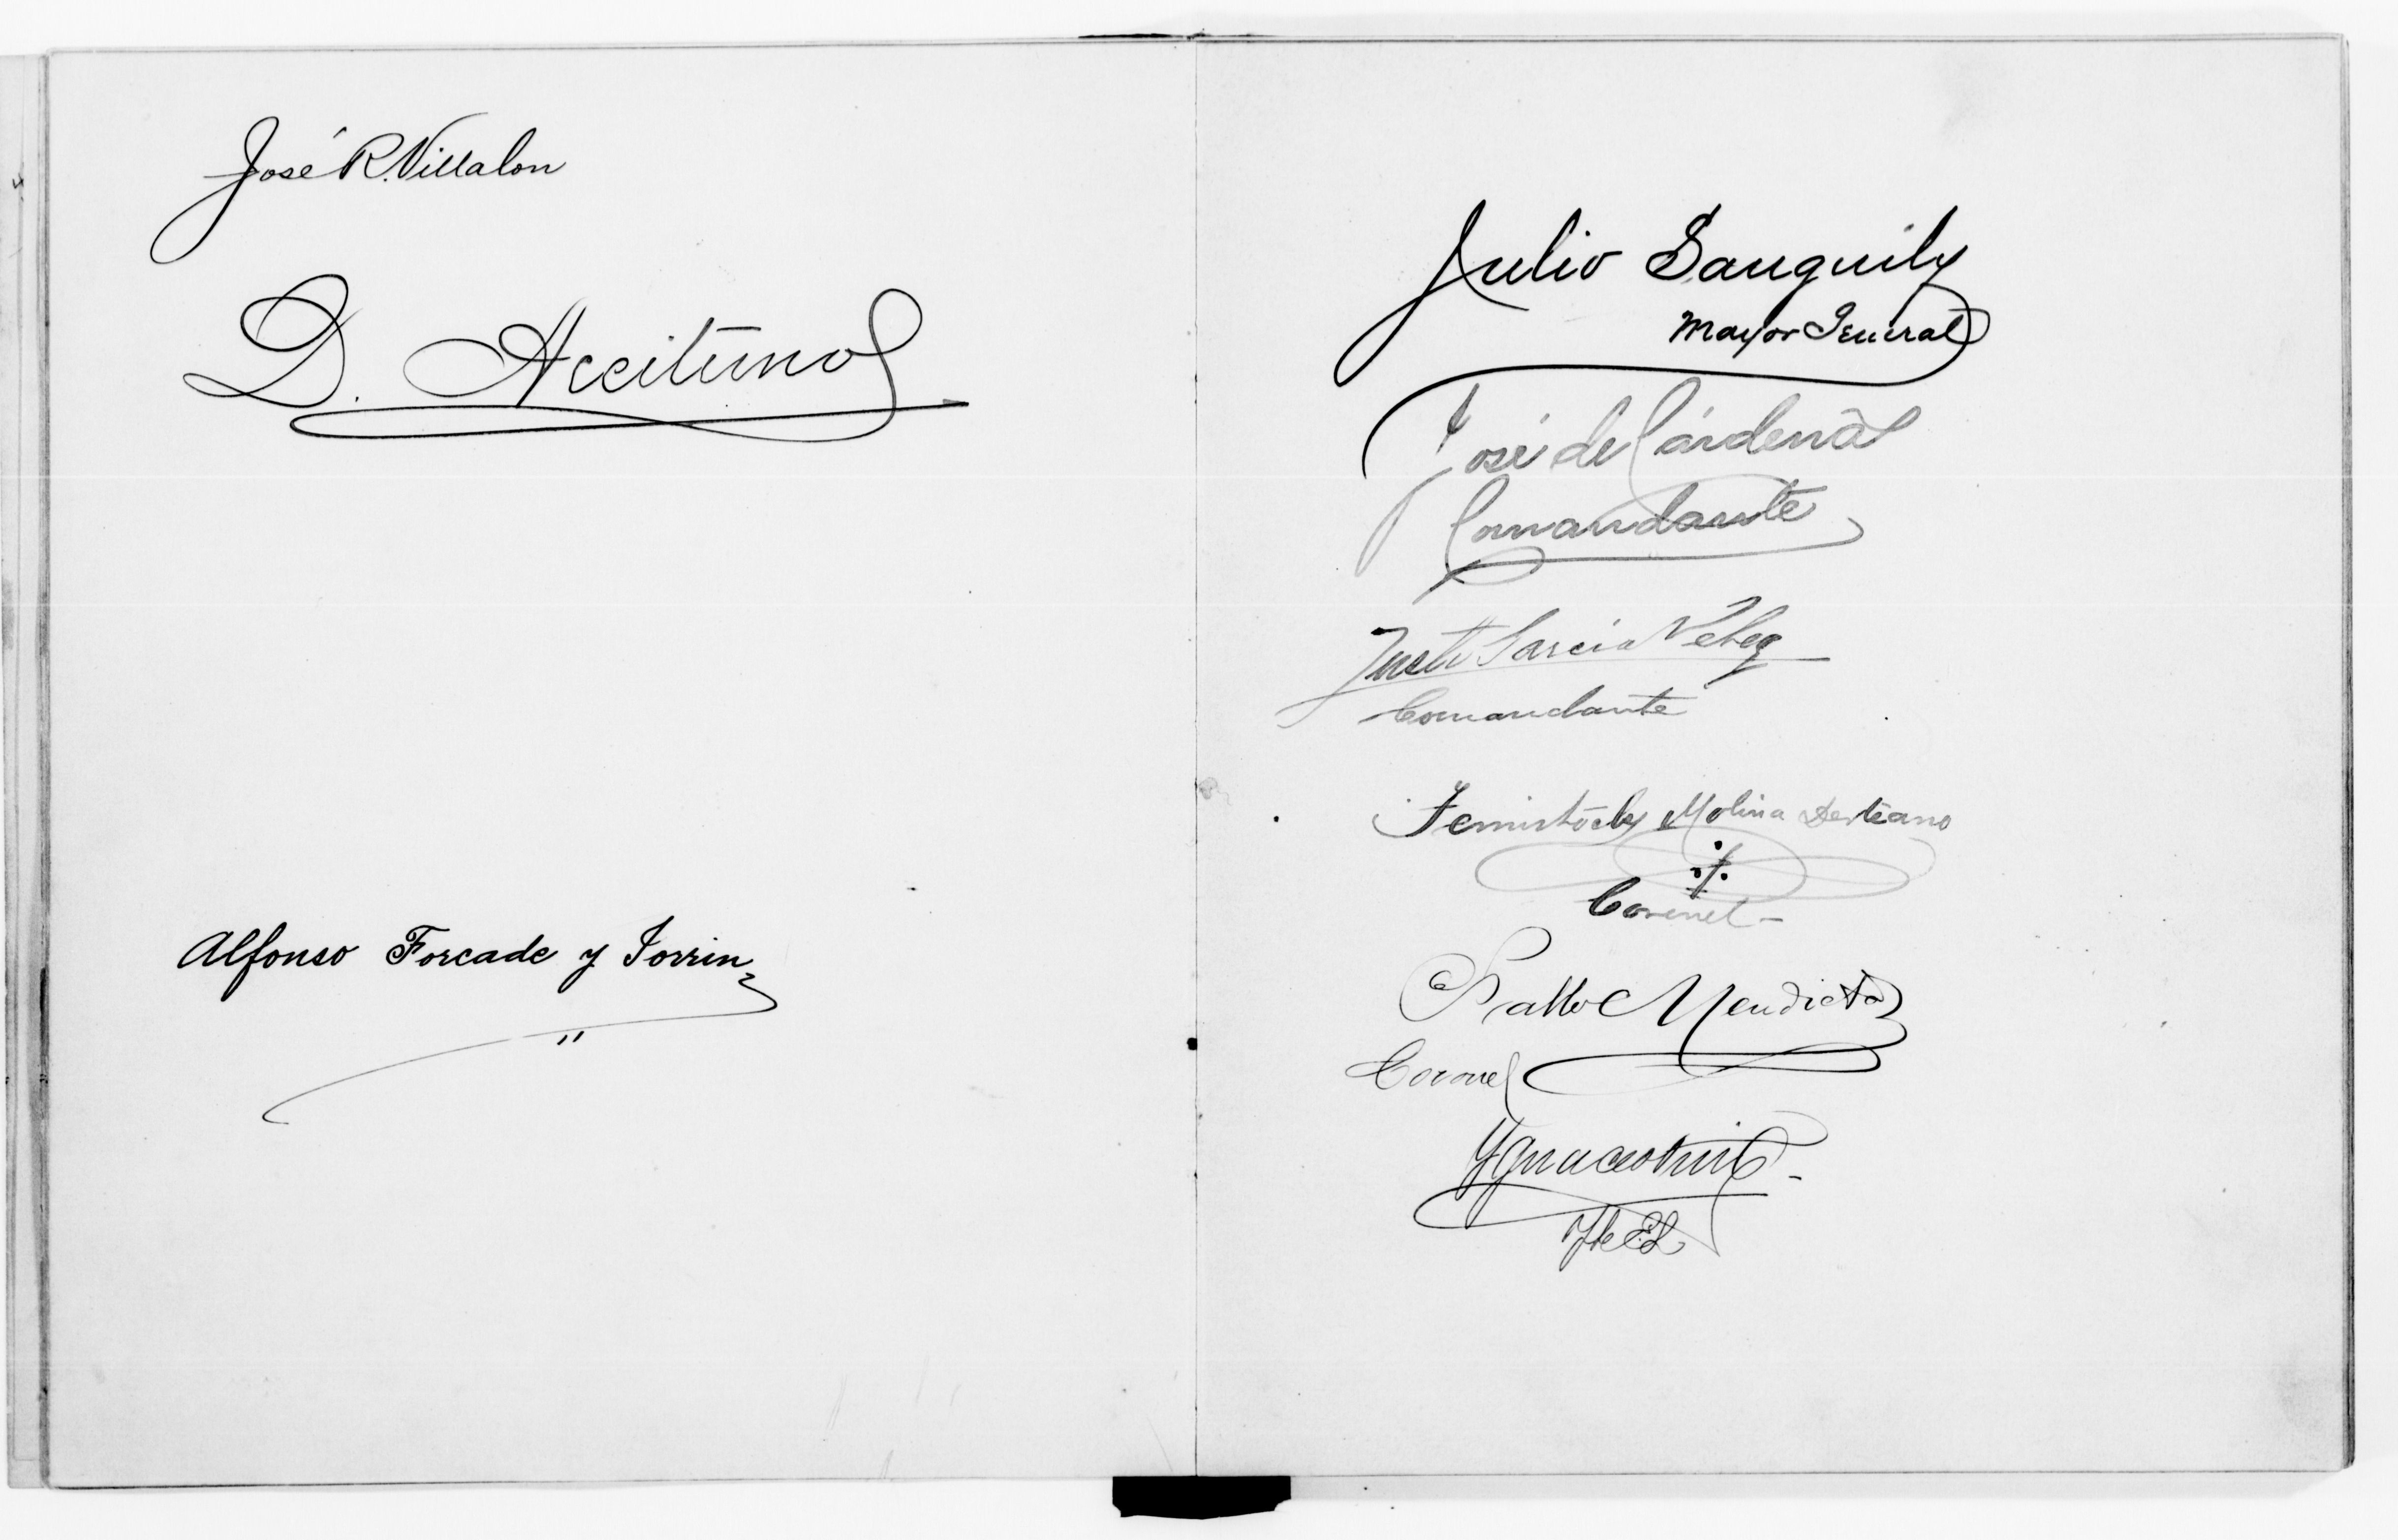 José R. Villalon
D. Aceituno
Alfonso Forcade y Jorrin
Julio Sanguily
Mayor General
José de Cárdenas
Comandante
Justo Garcia Velez
Comandante
Temistócles Molina Derteano
Coronel
Pablo Mendieta
Coronel